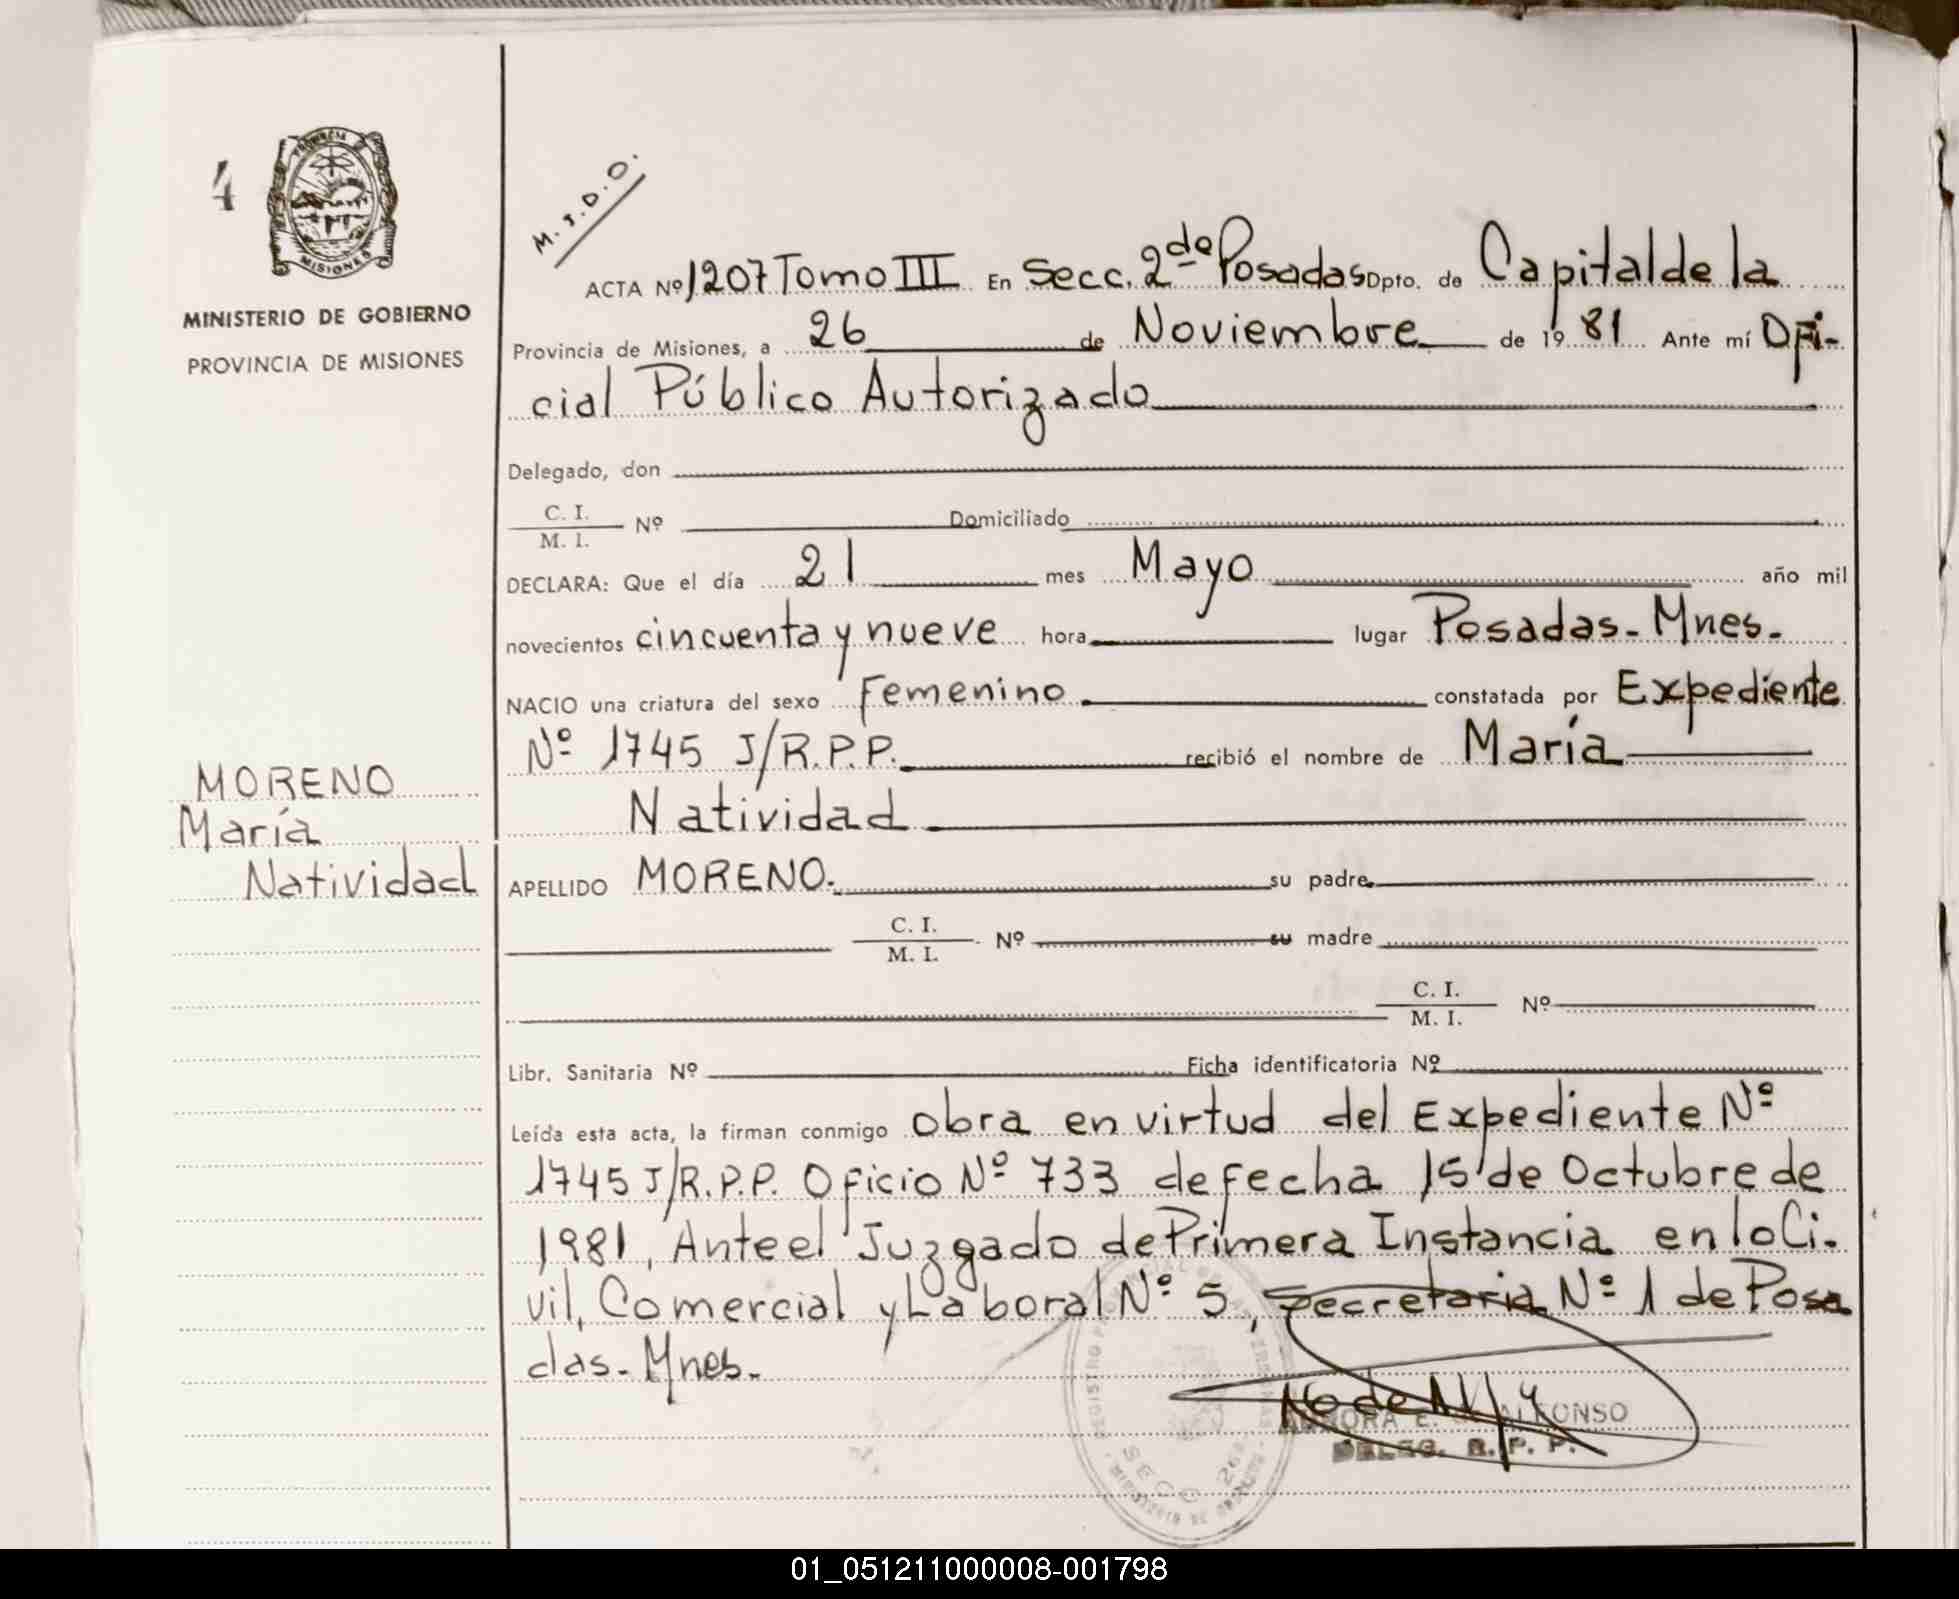 4
PROVINCIA DE
MISIONES
MINISTERIO DE GOBIERNO
PROVINCIA DE MISIONES
MORENO
María
Natividad
ACTA Nº 1207 Tomo III En Secc. 2da Posadas Dpto. de Capital de la
Provincia de Misiones, a 26 de Noviembre de 19 81 Ante mí Ofi-
cial Público Autorizado
Delegado, don
C. I.
M. I. Nº Domiciliado
DECLARA: Que el día 21 mes Mayo año mil
novecientos cincuenta y nueve hora lugar Posadas-Mnes.
NACIO una criatura del sexo Femenino constatada por Expediente
Nº 1745 J/R.P.P. recibió el nombre de María
Natividad
APELLIDO MORENO. su padre
C. I.
M. I. Nº su madre
C. I.
M. I. Nº
Libr. Sanitaria Nº Ficha identificatoria Nº
Leída esta acta, la firman conmigo obra en virtud del Expediente Nº
1745 J/R.P.P. Oficio Nº 733 de fecha 15 de Octubre de
1981, Ante el Juzgado de Primera Instancia en lo Ci-
vil, Comercial y Laboral Nº 5, Secretaria Nº 1 de Posa
das-Mnes.
REGISTRO PROVINCIAL DE LAS PERSONAS
SECC. 2da
MINISTERIO DE GOBIERNO
AURORA E. ALFONSO
DELEG. R. P. P.
01_051211000008-001798